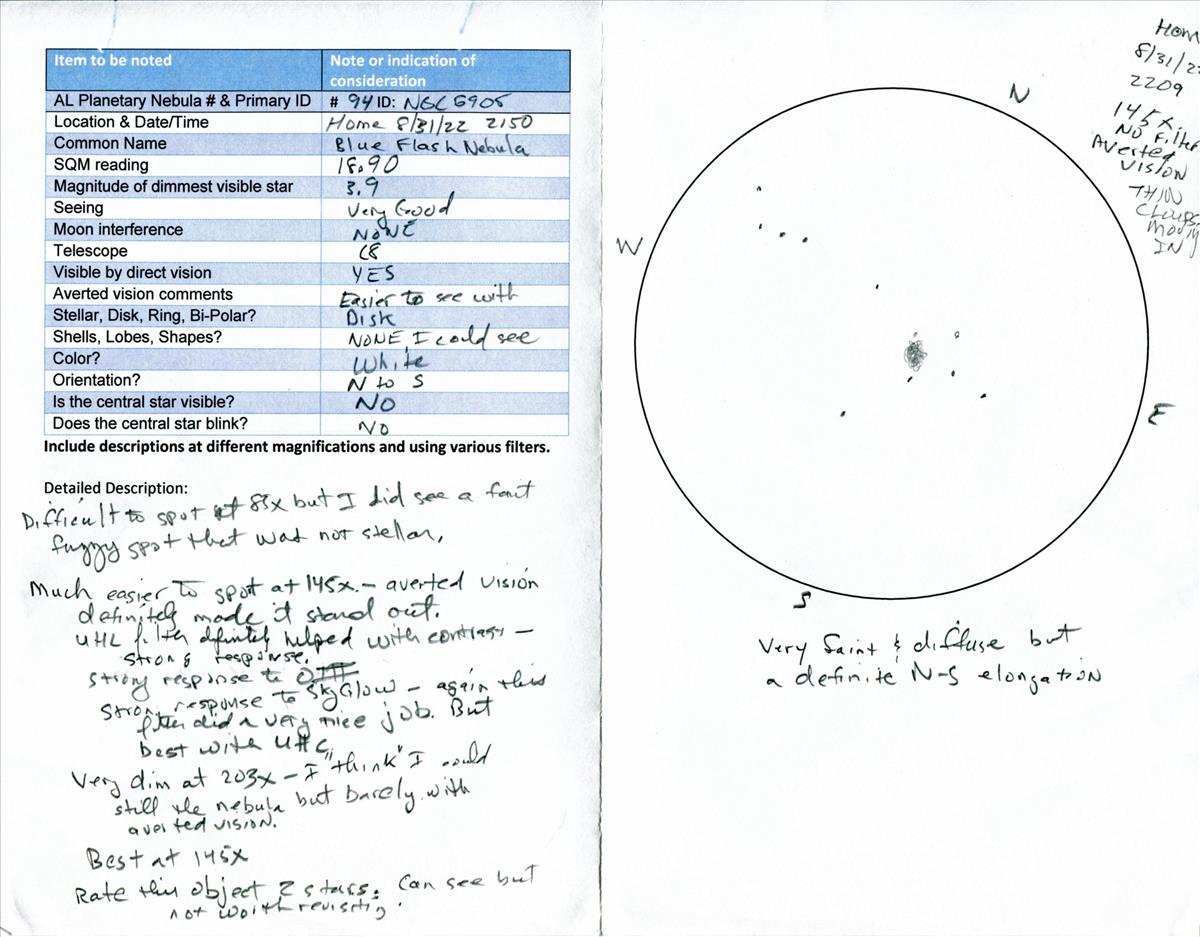 Item to be noted
Note or indication of
consideration
AL Planetary Nebula # & Primary ID # 94 ID: NGC 6905
Location & Date/Time Home 8/31/22 2150
Common Name Blue Flash Nebula
SQM reading 18.90
Magnitude of dimmest visible star 3.9
Seeing Very Good
Moon interference NONE
Telescope C8
Visible by direct vision YES
Averted vision comments Easier to see with
Stellar, Disk, Ring, Bi-Polar? Disk
Shells, Lobes, Shapes? NONE I could see
Color? White
Orientation? N to S
Is the central star visible? NO
Does the central star blink? NO
Include descriptions at different magnifications and using various filters.
Detailed Description:
Difficult to spot at 85x but I did see a faint
fuzzy spot that was not stellar.
Much easier to spot at 145x. - averted vision
definitely made it stand out.
UHC filter definitely helped with contrass -
strong response.
strong response to OIII
Strong response to SkyGlow - again this
filter did a very nice job. But
best with UHC
Very dim at 203x - I "think" I could
still the nebula but barely with
averted vision.
Best at 145x
Rate this object 2 stars. Can see but
not worth revisiting.
Home
8/31/22
2209
145x
NO filter
Averted
VISION
THIN
Clouds
moving
IN
N
W
E
S
Very faint & diffuse but
a definite N-S elongation